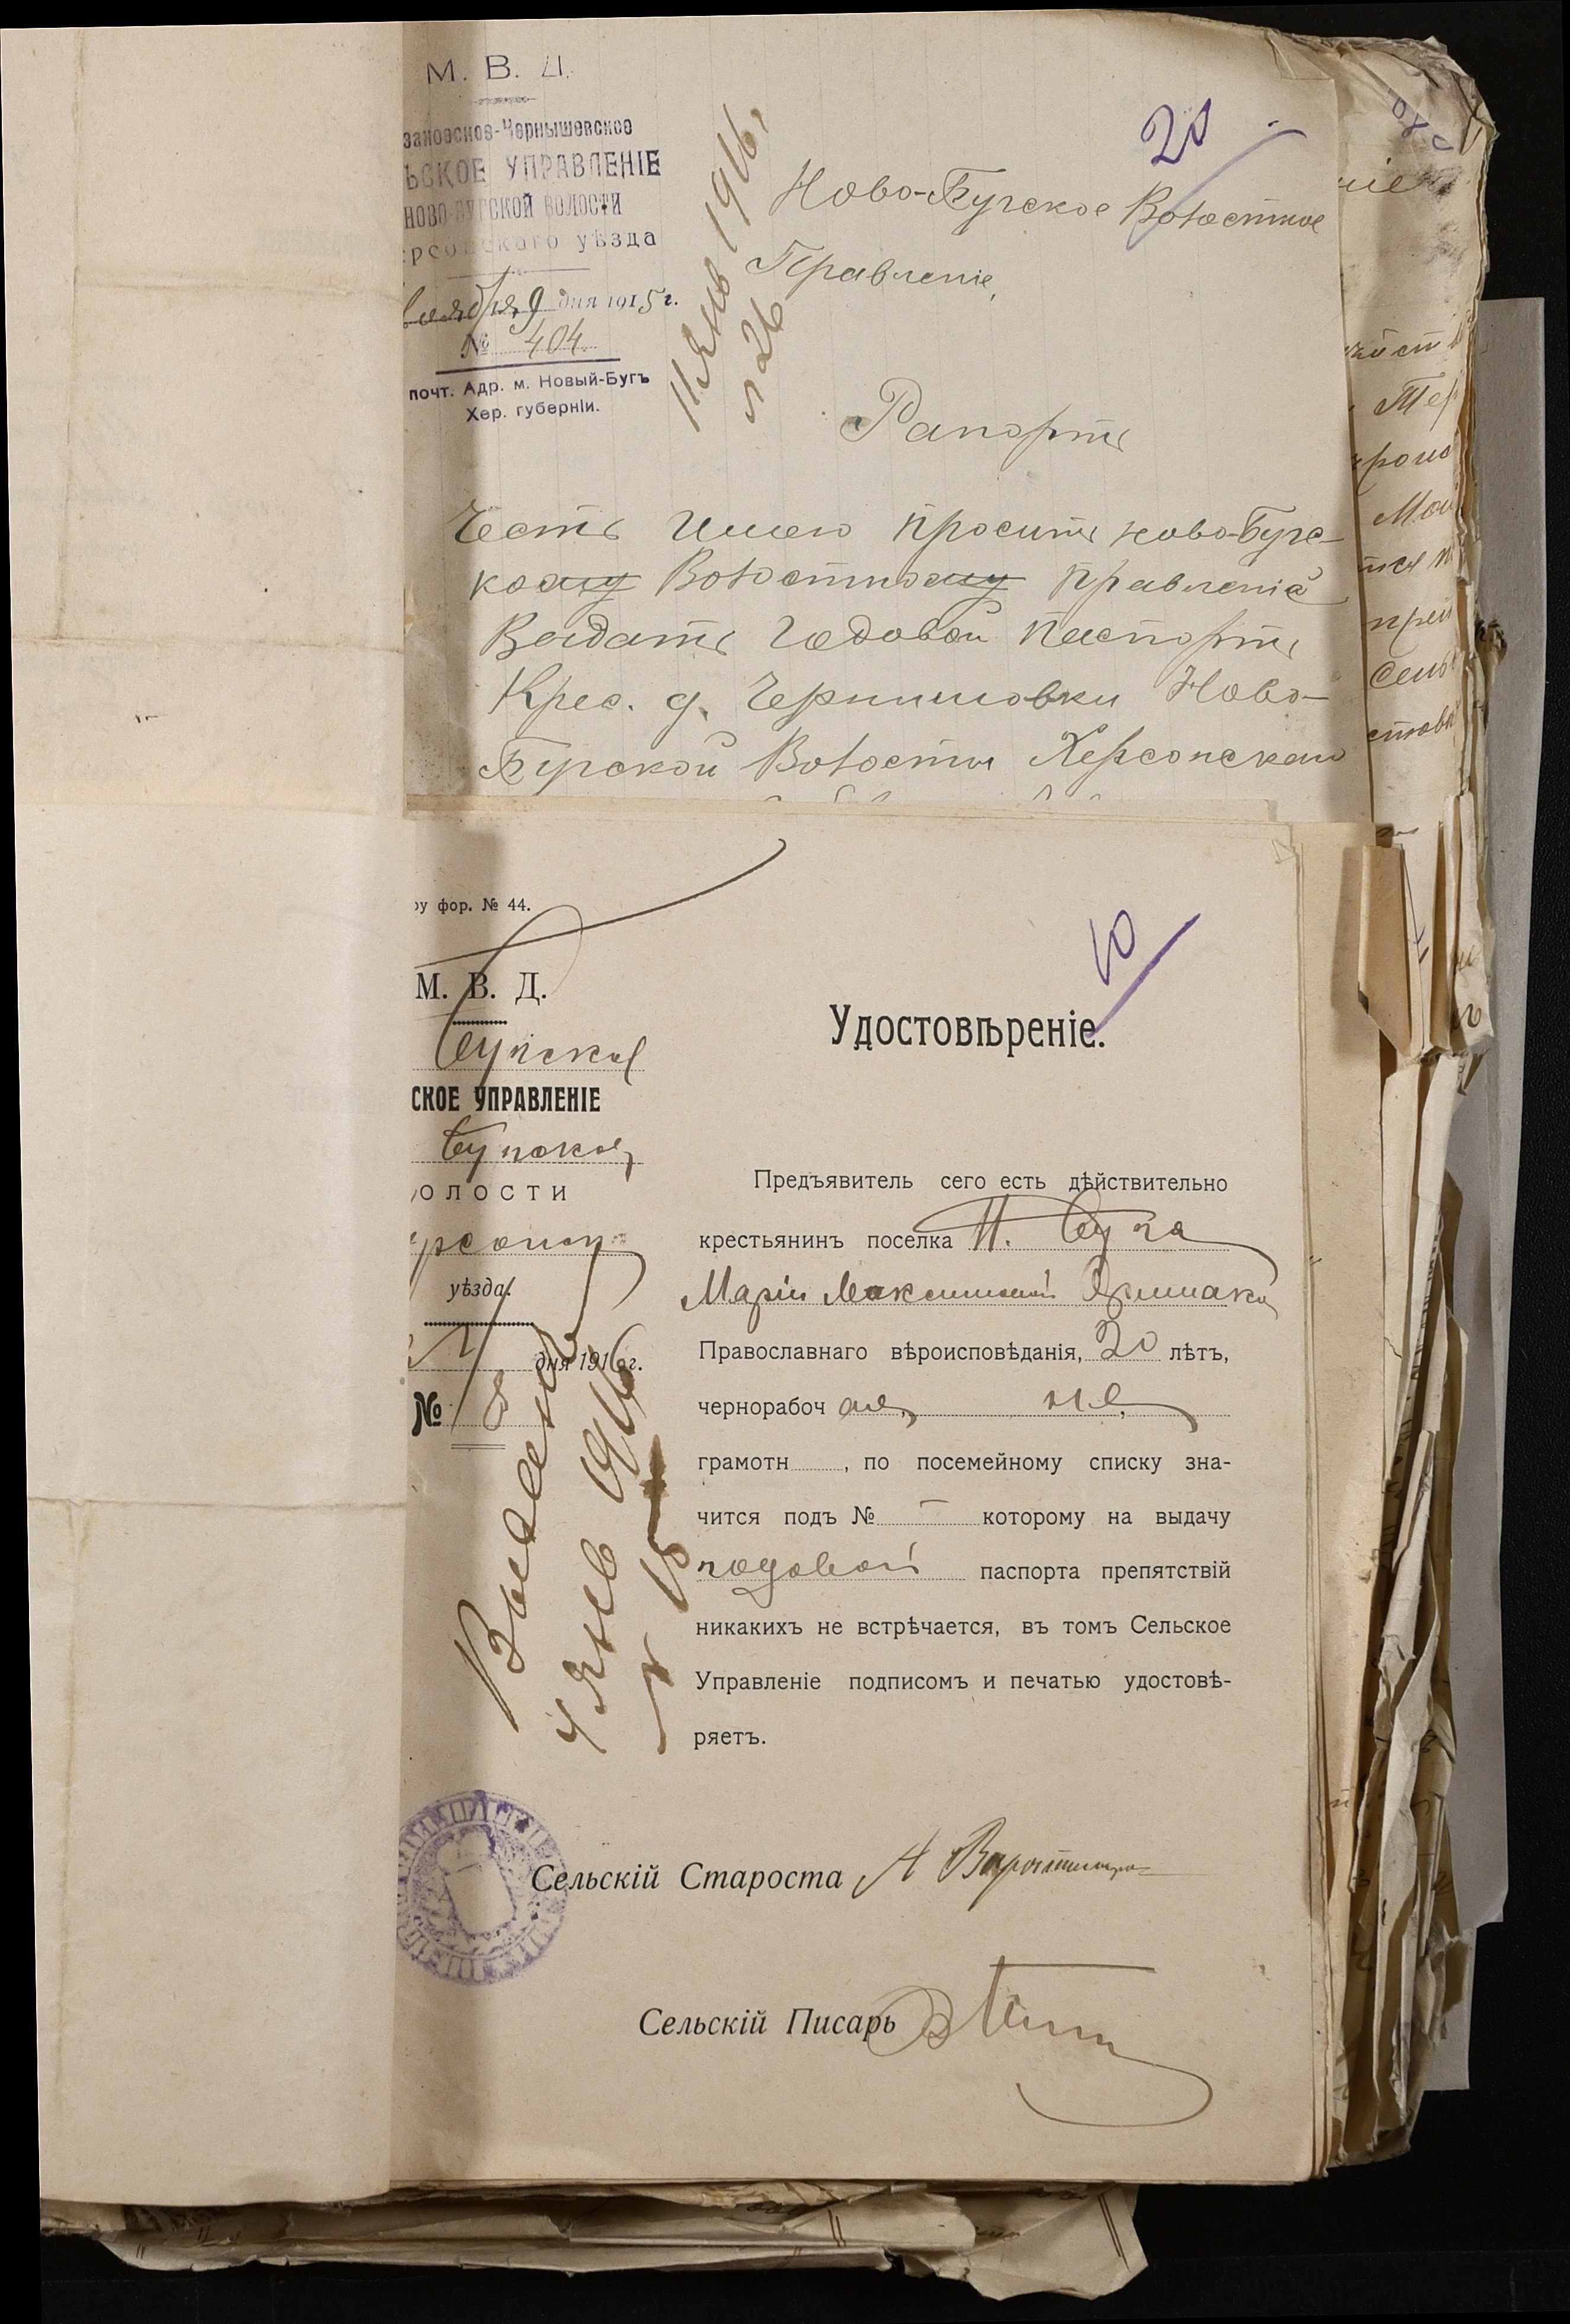 М. В. Д.
зановсное-Чернышевское
ЬСКОЕ УПРАВЛЕНІЕ
НОВО-БУГСКОЙ ВОЛОСТИ
ерсонскаго уѣзда
9 дня 1915 г.
№ 404
почт. Адр. м. Новый-Бугъ
Хер. губерніи.
11 Янв 1916,
№ 26
20
Ново-Бугское Волостное
Правленіе,
Рапортъ
Честь Имею просить ново-Бугс-
кое Волостное правленіе
Выдать Годовой паспортъ
Крес. д. Чернишовки Ново-
Бугской Волости Херсонскаго
ру фор. № 44.
М. В. Д.
Бугское
СКОЕ УПРАВЛЕНІЕ
Бугской
ОЛОСТИ
ерсонск
уѣзда.
дня 1916 г.
№ 8
4 Янв 1916
10
Удостовѣреніе.
Предъявитель сего есть дѣйствительно
крестьянинъ поселка Н. Буга
Марія Максимовой
Православнаго вѣроисповѣданія, 20 лѣтъ,
чернорабоч ая, не,
грамотн , по посемейному списку зна-
чится подъ № — которому на выдачу
годовой паспорта препятствій
никакихъ не встрѣчается, въ томъ Сельское
Управленіе подписомъ и печатью удостовѣ-
ряетъ.
Сельскій Староста
Сельскій Писарь